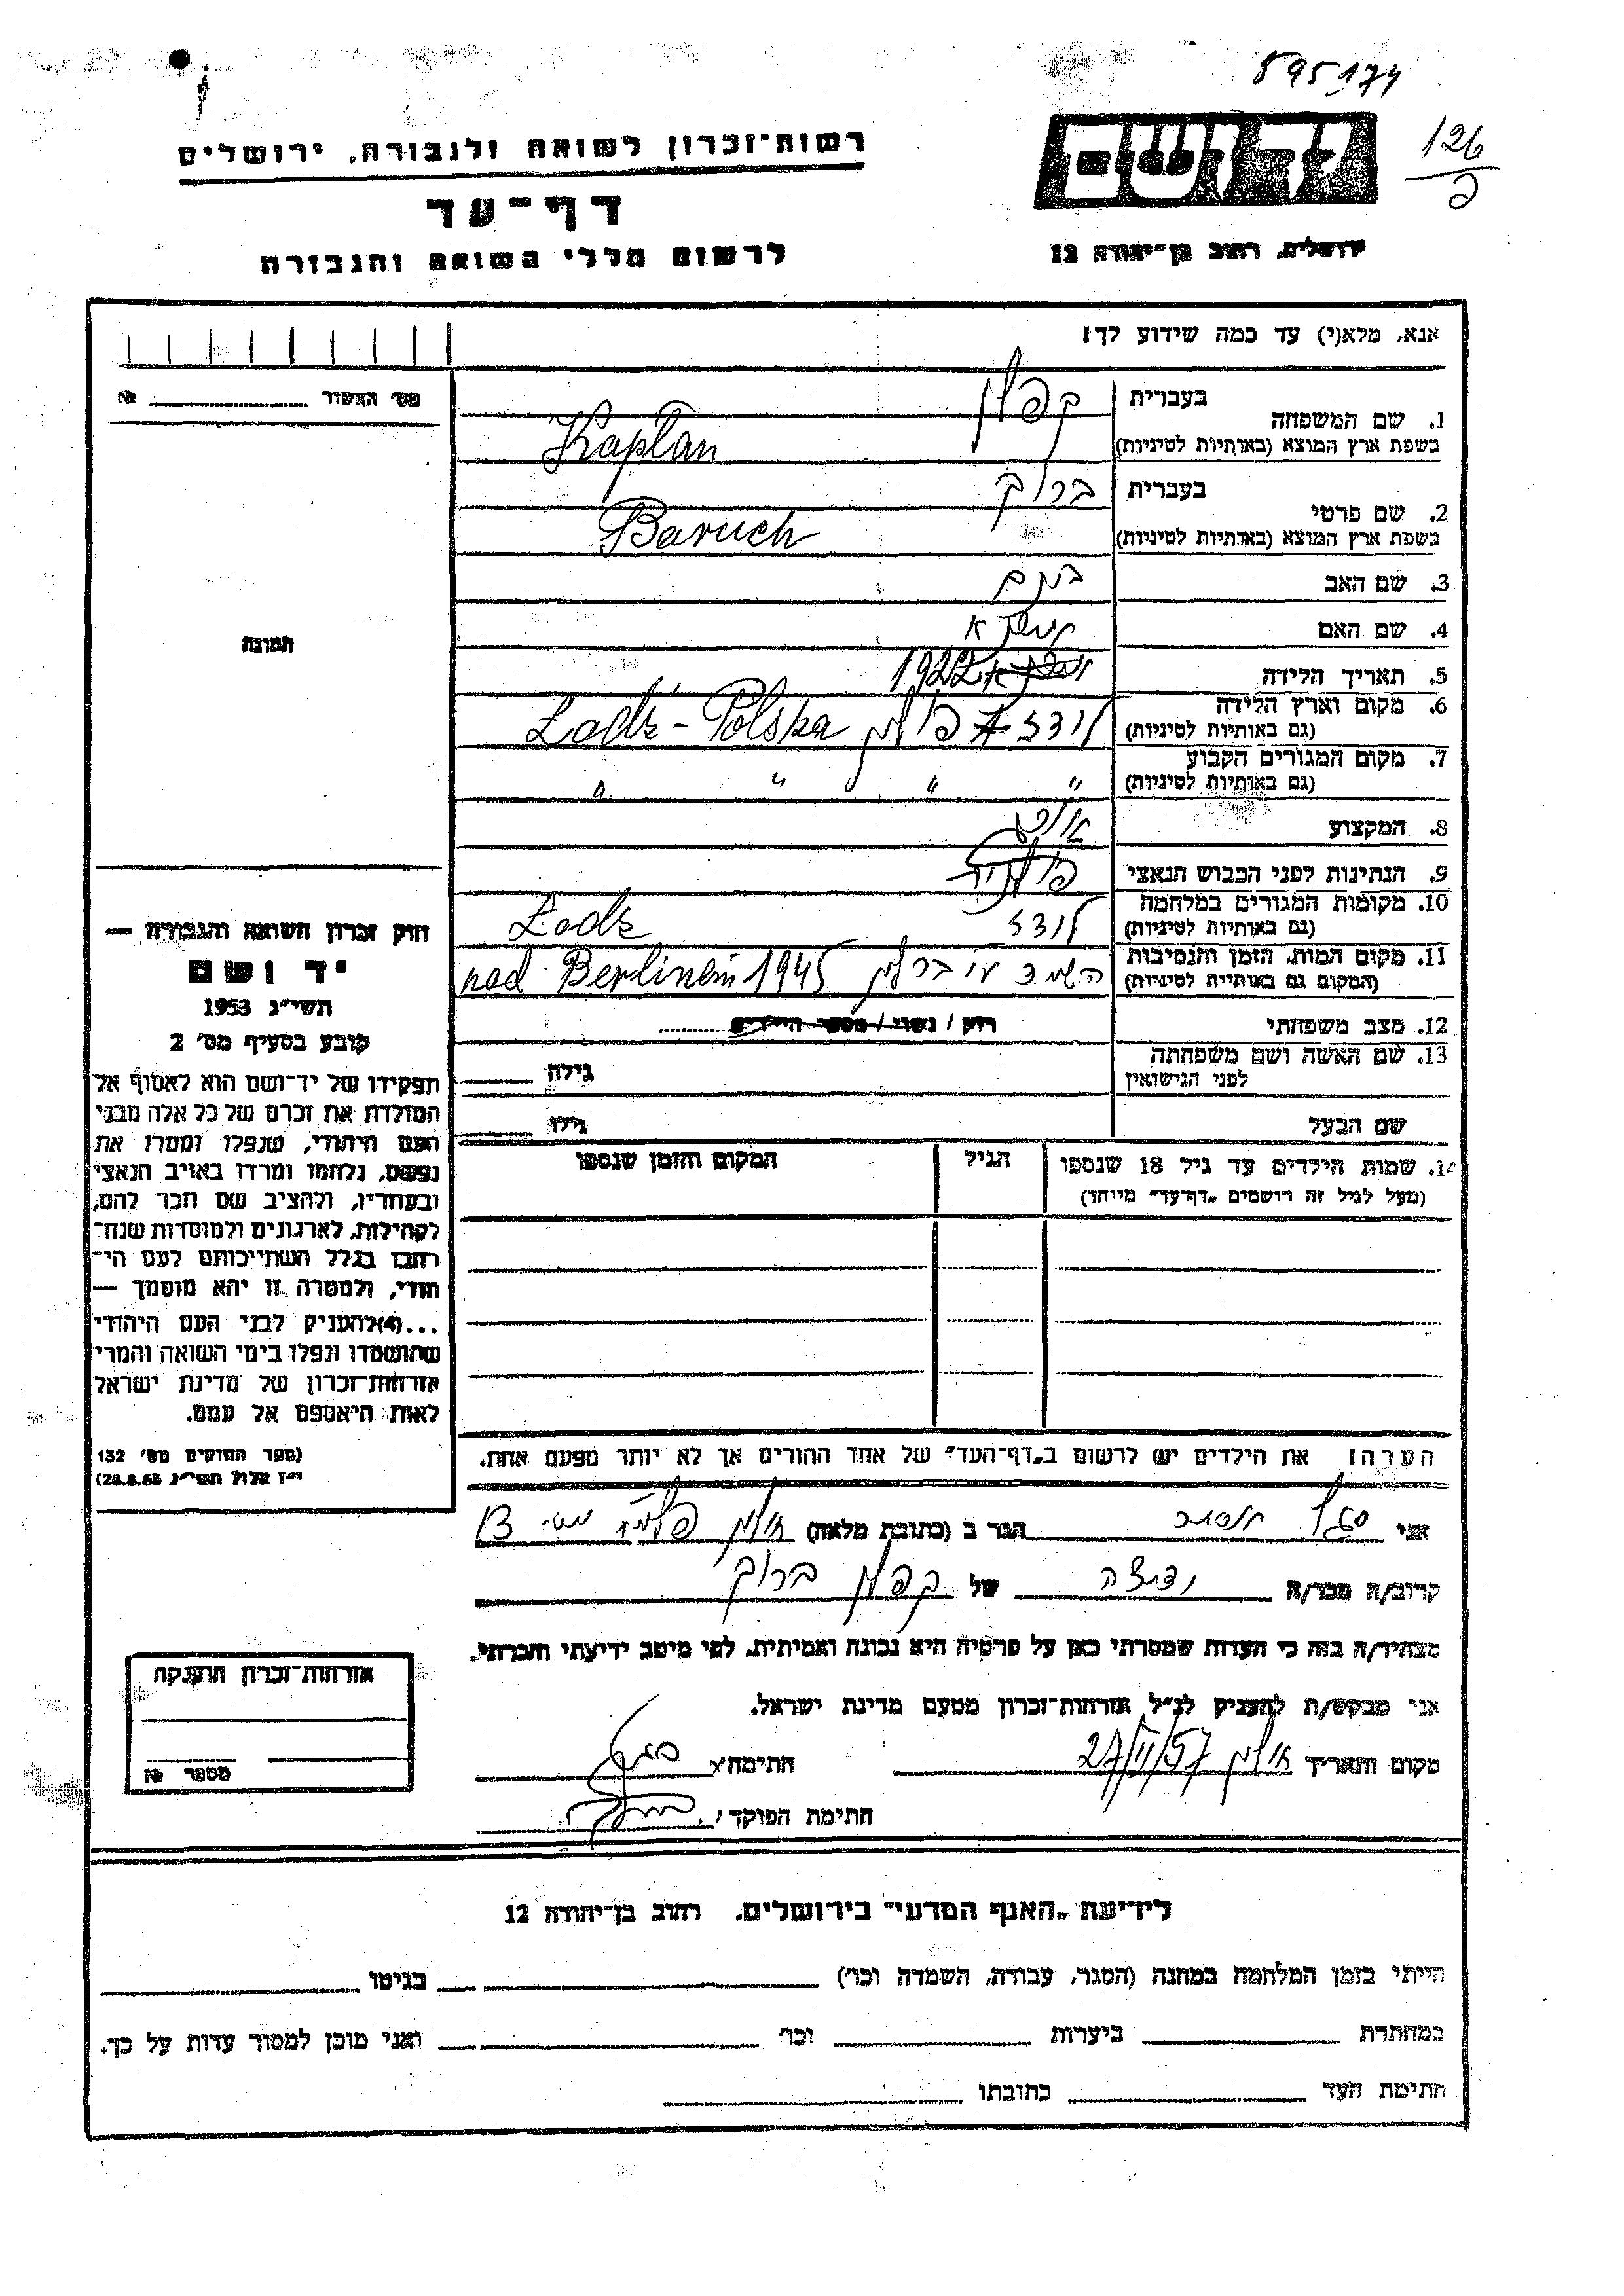 595174
126
רשות־זכרון לשואה ולגבורה, ירושלים
דף־עד
לרשום חללי השואה והגבורה
יד ושם
ירושלים, רחוב בן־יהודה 12
אנא, מלא(י) עד כמה שידוע לך!
מס׳ האשור №
1. שם המשפחה בעברית קפלן
בשפת ארץ המוצא (באותיות לטיניות) Kaplan
2. שם פרטי בעברית ברוך
בשפת ארץ המוצא (באותיות לטיניות) Baruch
3. שם האב
4. שם האם
5. תאריך הלידה 1922
6. מקום וארץ הלידה (גם באותיות לטיניות) לודז פולין Łodź - Polska
7. מקום המגורים הקבוע (גם באותיות לטיניות) " " " "
8. המקצוע
9. הנתינות לפני הכבוש הנאצי פולנית
10. מקומות המגורים במלחמה (גם באותיות לטיניות) לודז Łodź
11. מקום המות, הזמן והנסיבות (המקום גם באותיות לטיניות) ברלין nad Berlinem 1945
12. מצב משפחתי רווק / נשוי / מספר הילדים
13. שם האשה ושם משפחתה לפני הנישואין גילה
שם הבעל גילו
14. שמות הילדים עד גיל 18 שנספו הגיל המקום והזמן שנספו
(מעל לגיל זה רושמים „דף־עד” מיוחד)
הערה: את הילדים יש לרשום ב„דף־העד” של אחד ההורים אך לא יותר מפעם אחת.
תמונה
חוק זכרון השואה והגבורה —
יד ושם
תשי״ג 1953
קובע בסעיף מס׳ 2
תפקידו של יד־ושם הוא לאסוף אל
המולדת את זכרם של כל אלה מבני
העם היהודי, שנפלו ומסרו את
נפשם, נלחמו ומרדו באויב הנאצי
ובעוזריו, ולהציב שם וזכר להם,
לקהילות, לארגונים ולמוסדות שנח־
רבו בגלל השתייכותם לעם הי־
הודי, ולמטרה זו יהא מוסמך —
...(4) להעניק לבני העם היהודי
שהושמדו ונפלו בימי השואה והמרי
אזרחות־זכרון של מדינת ישראל
לאות היאספם אל עמם.
(ספר החוקים מס׳ 132
י״ז אלול תשי״ג 28.8.53)
אני סגל הגר ב (כתובת מלאה)
קרוב/ה מכר/ה של קפלן ברוך
מצהיר/ה בזה כי העדות שמסרתי כאן על פרטיה היא נכונה ואמיתית, לפי מיטב ידיעתי והכרתי.
אני מבקש/ת להעניק לנ״ל אזרחות־זכרון מטעם מדינת ישראל.
מקום ותאריך 27/II/57 חתימה
חתימת הפוקד
אזרחות־זכרון הוענקה
מספר №
לידיעת „האגף המדעי” בירושלים, רחוב בן־יהודה 12
הייתי בזמן המלחמה במחנה (הסגר, עבודה, השמדה וכו׳) בגיטו
במחתרת ביערות וכו׳ ואני מוכן למסור עדות על כך.
חתימת העד כתובתו